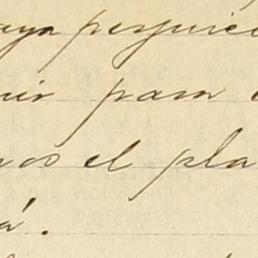 haya perjuici
uir para
nos el pla
á.